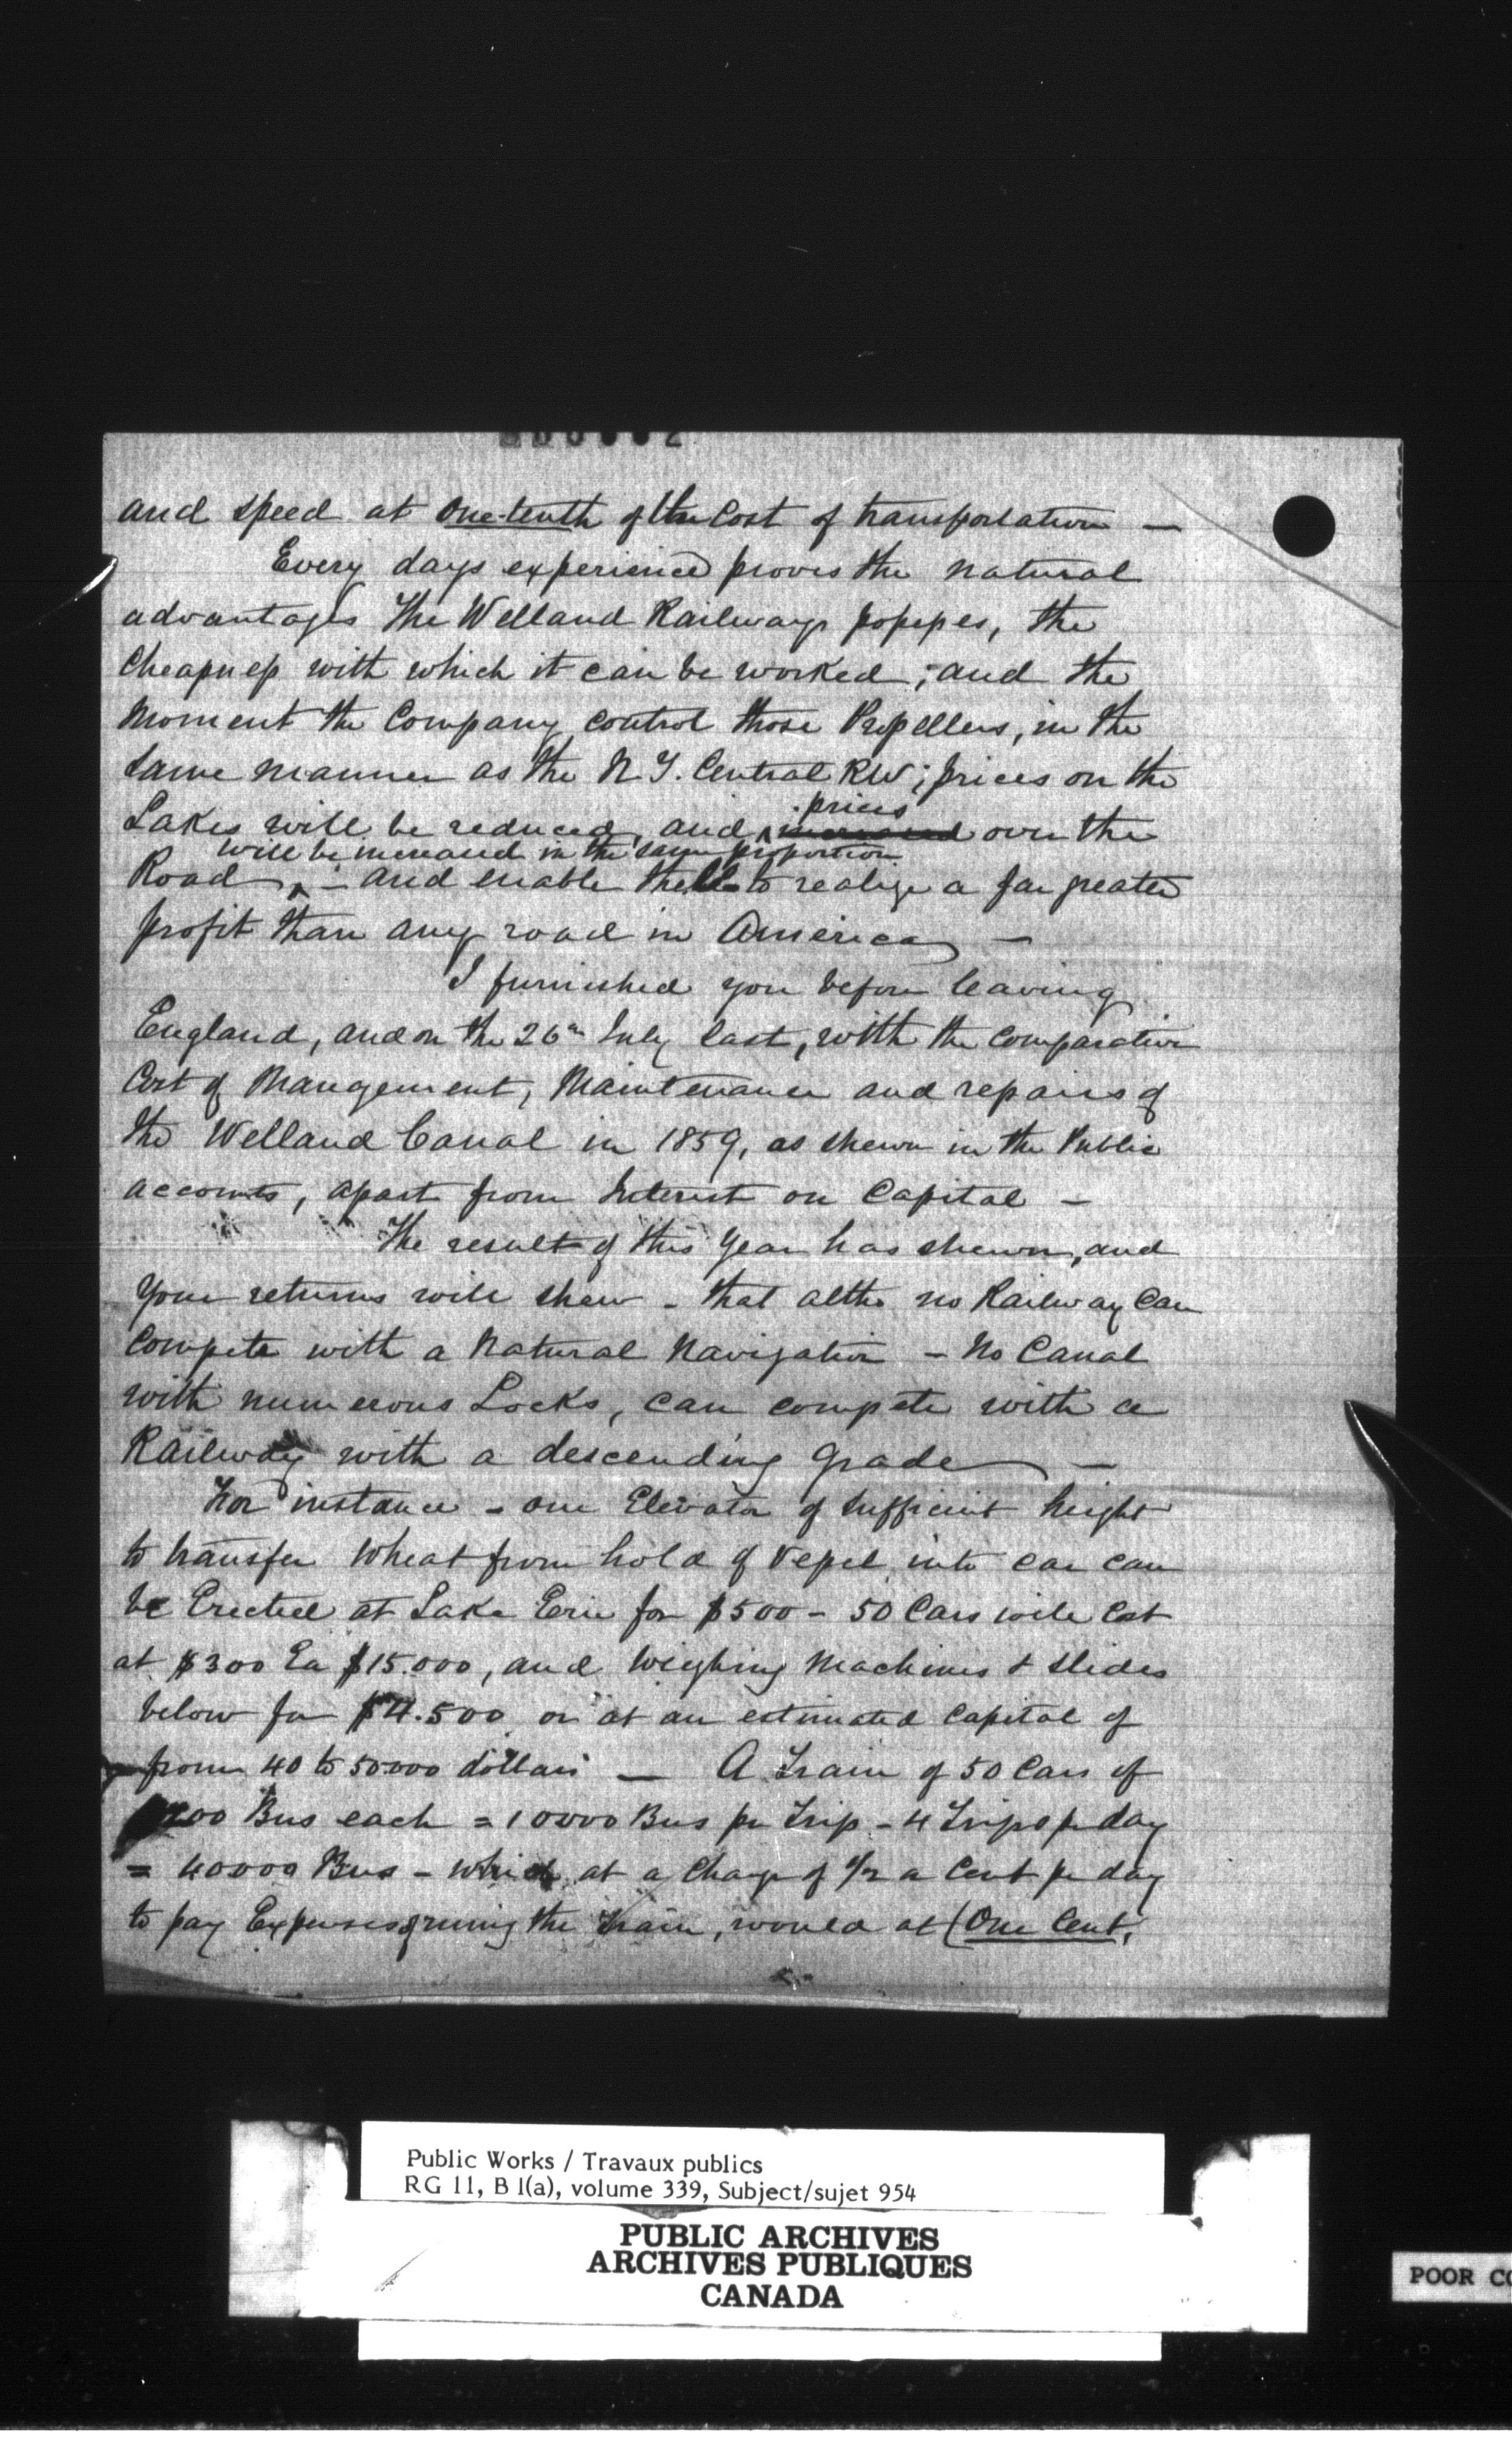 and speed at One-tenth of the Cost of transportation —
Every days experience proves the natural
advantages The Welland Railway possesses, the
Cheapness with which it can be worked; and the
moment the Company control those Propellers, in the
same manner as the N.Y. Central RW; prices on the
prices
Lakes will be reduced, and increased over the
will be increased in the same proportion
Road, — and enable them to realize a far greater
profit than any road in America —
I furnished you before leaving
England, and on the 26th July last, with the comparative
Cost of Mangement, Maintenance and repairs of
the Welland Canal in 1859, as shewn in the Public
accounts, apart from Interest on Capital —
The result of this Year has shewn, and
Your returns will shew - that altho no Railway Can
Compete with a Natural Navigation - No Canal
with numerous Locks, can compete with a
Railway with a descending grade —
For instance - one Elevator of sufficient height
to transfer Wheat from hold of Vessel into car can
be Erected at Lake Erie for $500 - 50 Cars will Cost
at $300 Ea $15.000, and Weighing Machines & slides
below for $4.500 or at an estimated Capital of
from 40 to 50.000 dollars — A Train of 50 Cars of
200 Bus each = 10000 Bus pr Trip - 4 Trips pr day
= 40000 Bus - which at a Charge of 1/2 a Cent pr day
to pay Expenses of runing the train, would at (One Cent,
Public Works / Travaux publics
RG 11, B 1(a), volume 339, Subject/sujet 954
PUBLIC ARCHIVES
ARCHIVES PUBLIQUES
CANADA
POOR CO